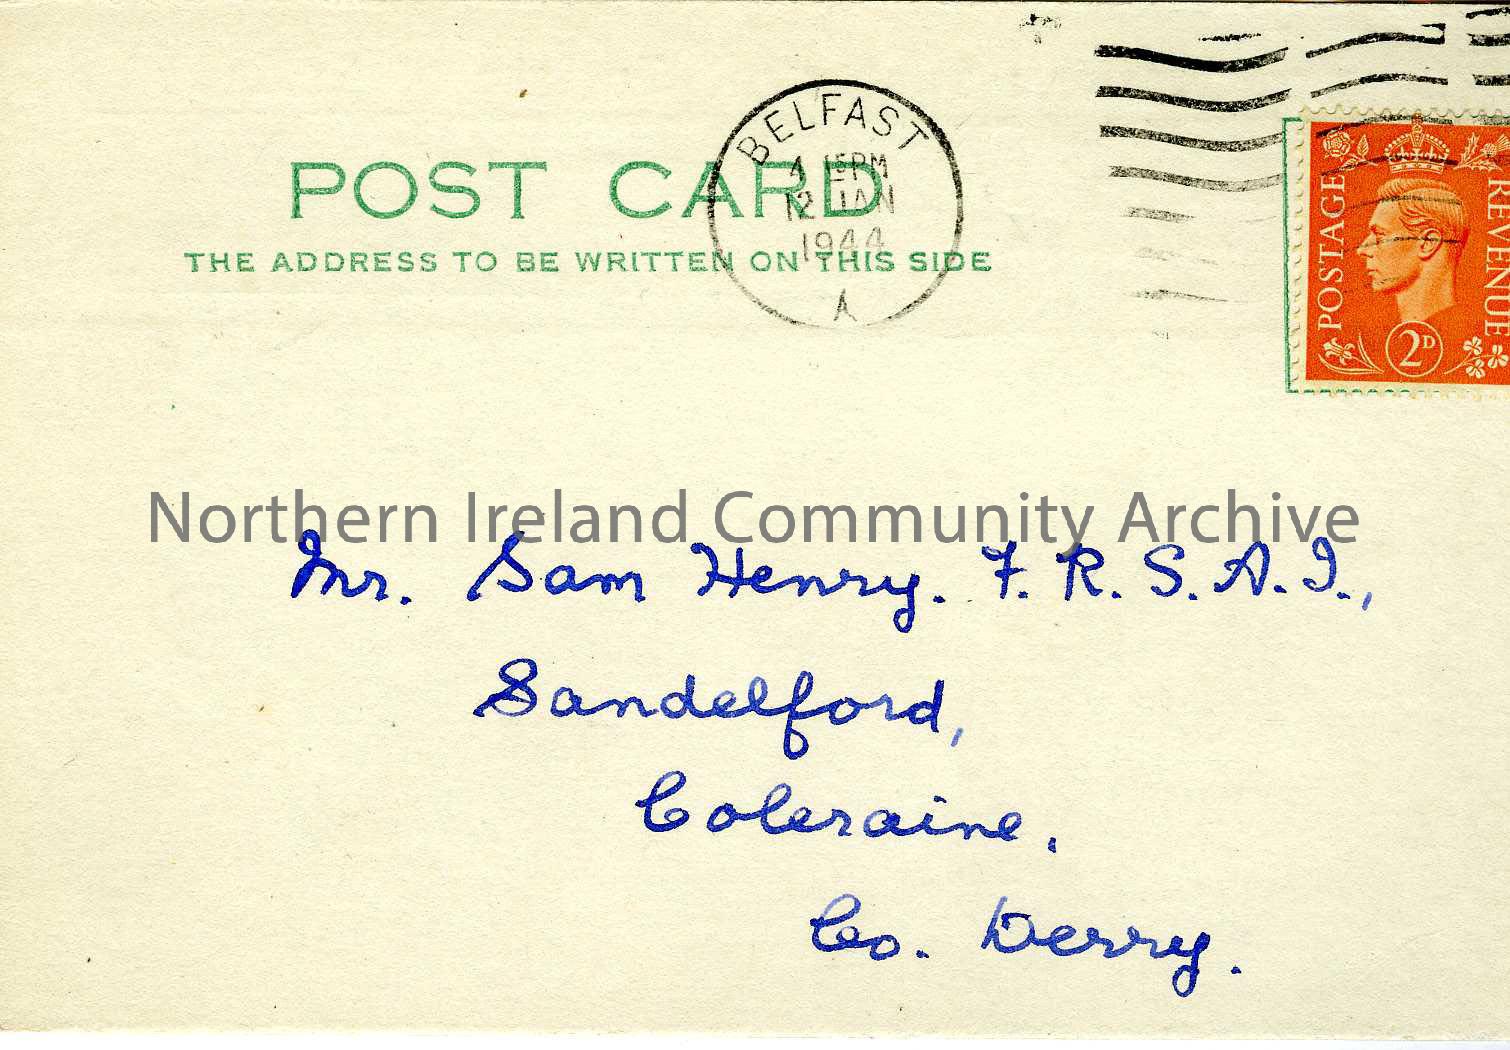 BELFAST
4 15PM
12 JAN
1944
A
POST CARD
THE ADDRESS TO BE WRITTEN ON THIS SIDE
POSTAGE
REVENUE
2D
Northern Ireland Community Archive
Mr. Sam Henry. F.R.S.A.I.,
Sandelford,
Coleraine.
Co. Derry.